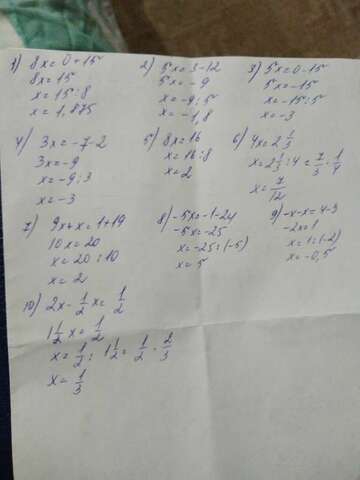 1) 8x = 0 + 15
8x = 15
x = 15 : 8
x = 1,875
2) 5x = 3 - 12
5x = -9
x = -9 : 5
x = -1,8
3) 5x = 0 - 15
5x = -15
x = -15 : 5
x = -3
4) 3x = -7 - 2
3x = -9
x = -9 : 3
x = -3
5) 8x = 16
x = 16 : 8
x = 2
6) 4x = 2 1/3
x = 2 1/3 : 4 = 7/3 · 1/4
x = 7/12
7) 9x + x = 1 + 19
10x = 20
x = 20 : 10
x = 2
8) -5x = -1 - 24
-5x = -25
x = -25 : (-5)
x = 5
9) -x - x = 4 - 3
-2x = 1
x = 1 : (-2)
x = -0,5
10) 2x - 1/2 x = 1/2
1 1/2 x = 1/2
x = 1/2 : 1 1/2 = 1/2 · 2/3
x = 1/3